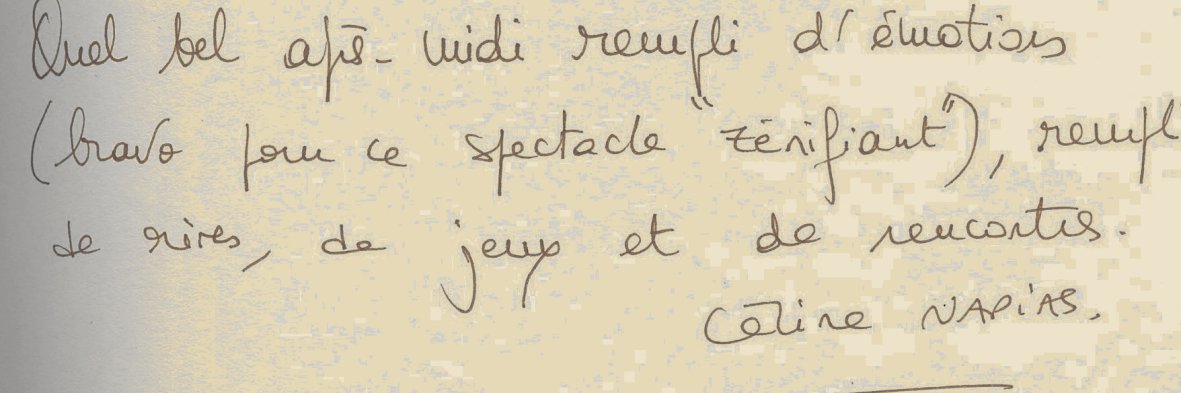 Quel bel après-midi rempli d'émotions
(bravo pour ce spectacle "zénifiant"), rempli
de rires, de jeux et de rencontres.
Céline NAPIAS.